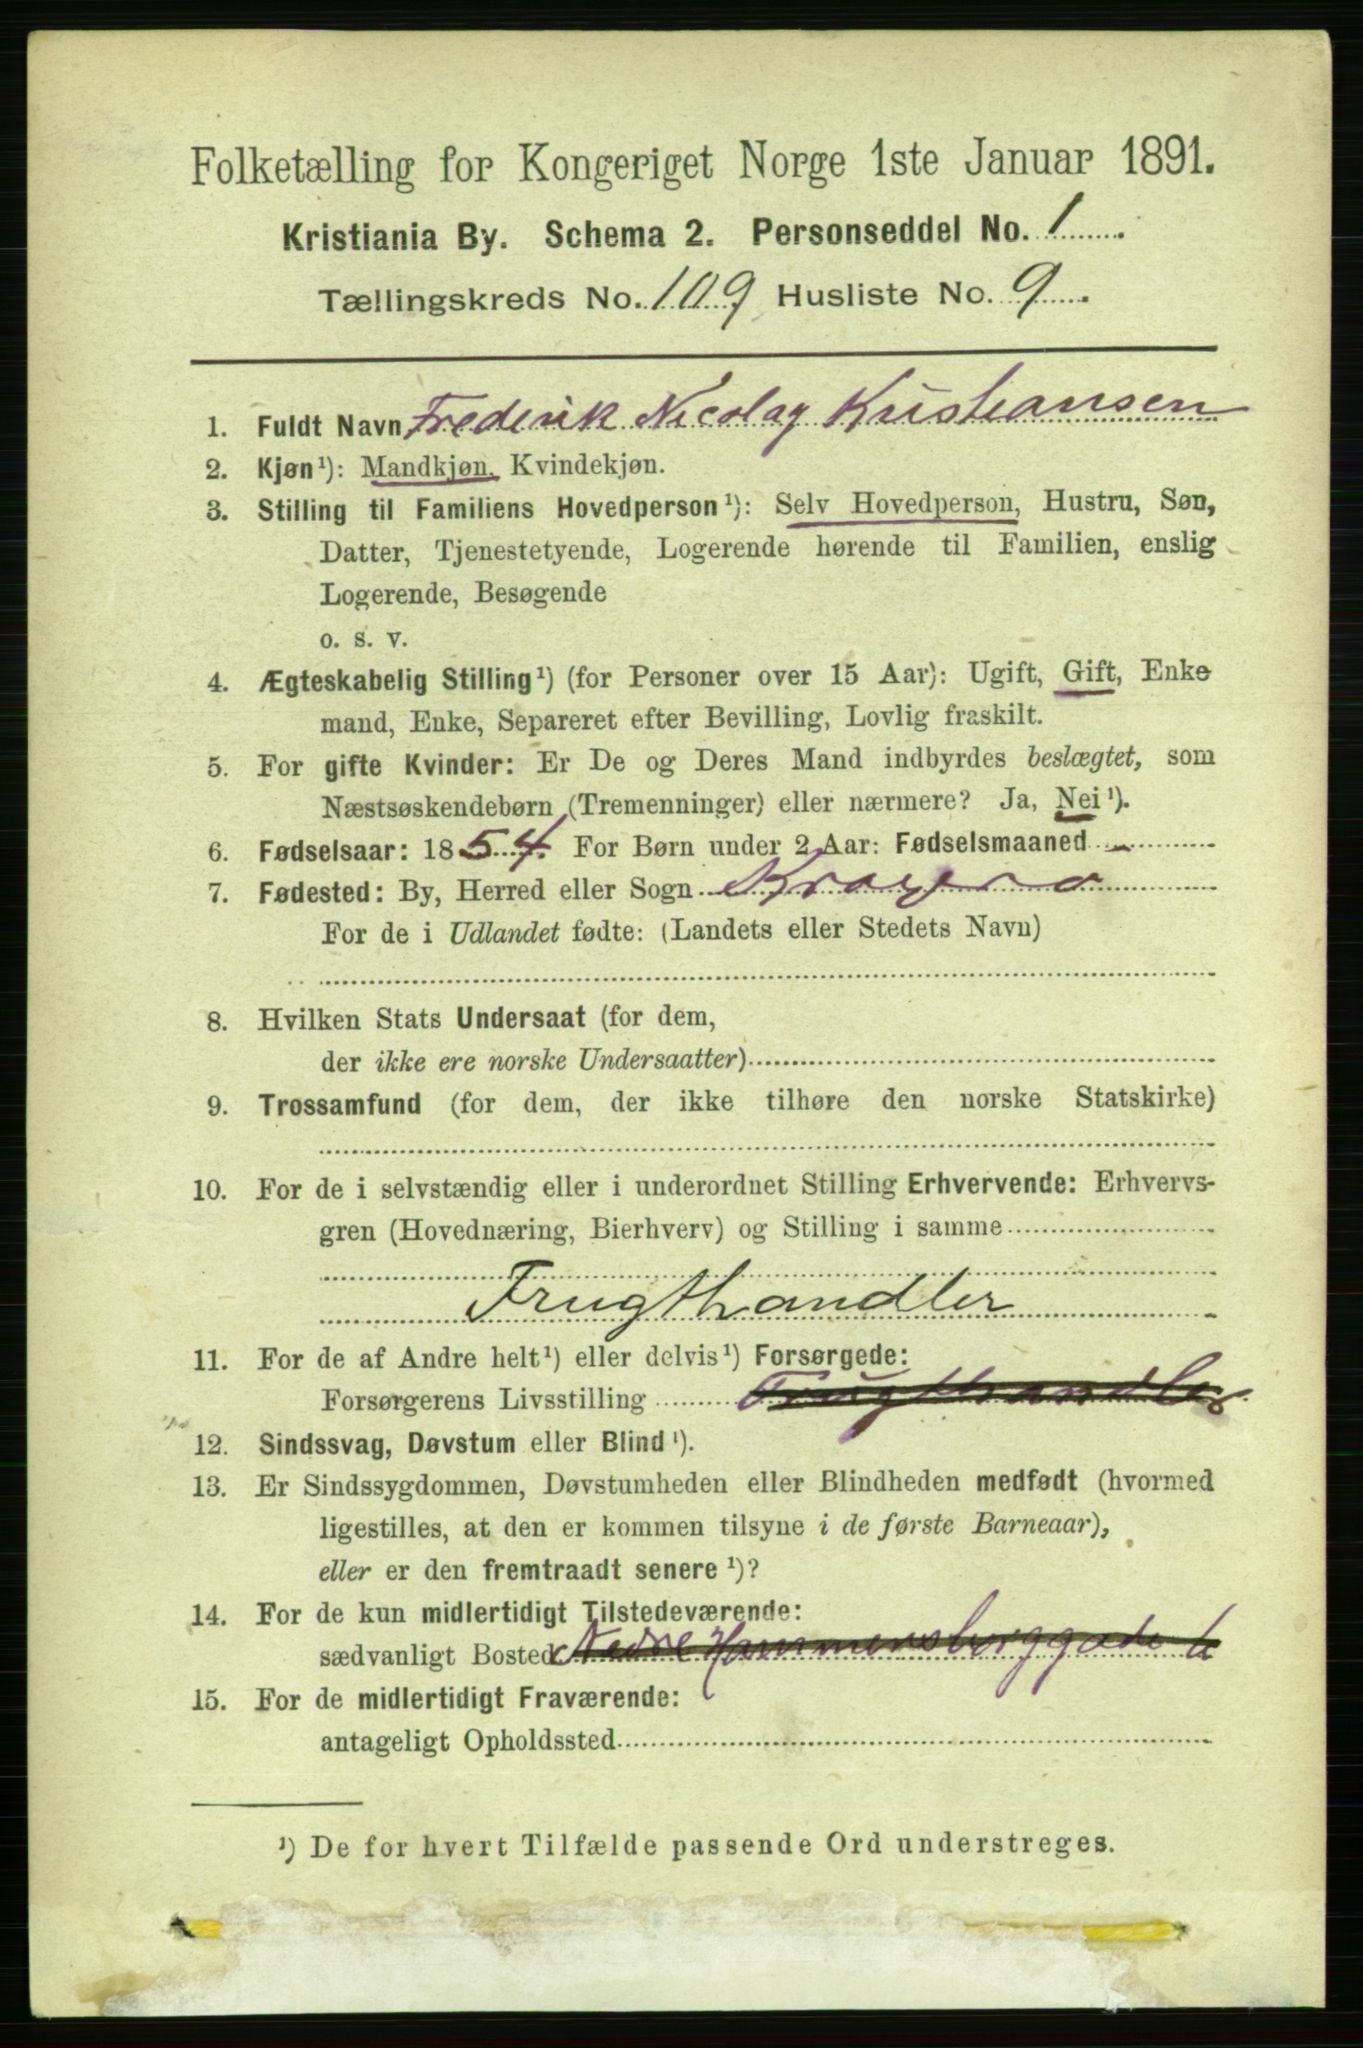 Folketælling for Kongeriget Norge 1ste Januar 1891.
Kristiania By. Schema 2. Personseddel No. 1
Tællingskreds No. 109 Husliste No. 9
1. Fuldt Navn Frederik Nicolay Kristiansen
2. Kjøn ¹): Mandkjøn, Kvindekjøn.
3. Stilling til Familiens Hovedperson ¹): Selv Hovedperson, Hustru, Søn,
Datter, Tjenestetyende, Logerende hørende til Familien, enslig
Logerende, Besøgende
o. s. v.
4. Ægteskabelig Stilling ¹) (for Personer over 15 Aar): Ugift, Gift, Enke
mand, Enke, Separeret efter Bevilling, Lovlig fraskilt.
5. For gifte Kvinder: Er De og Deres Mand indbyrdes beslægtet, som
Næstsøskendebørn (Tremenninger) eller nærmere? Ja, Nei ¹).
6. Fødselsaar: 1854. For Børn under 2 Aar: Fødselsmaaned -
7. Fødested: By, Herred eller Sogn Kragerø
For de i Udlandet fødte: (Landets eller Stedets Navn)
8. Hvilken Stats Undersaat (for dem,
der ikke ere norske Undersaatter)
9. Trossamfund (for dem, der ikke tilhøre den norske Statskirke)
10. For de i selvstændig eller i underordnet Stilling Erhvervende: Erhvervs-
gren (Hovednæring, Bierhverv) og Stilling i samme
Frugthandler
11. For de af Andre helt ¹) eller delvis ¹) Forsørgede:
Forsørgerens Livsstilling Frugthandler
12. Sindssvag, Døvstum eller Blind ¹).
13. Er Sindssygdommen, Døvstumheden eller Blindheden medfødt (hvormed
ligestilles, at den er kommen tilsyne i de første Barneaar),
eller er den fremtraadt senere ¹)?
14. For de kun midlertidigt Tilstedeværende:
sædvanligt Bosted Nedre Hammersborggade 6
15. For de midlertidigt Fraværende:
antageligt Opholdssted
¹) De for hvert Tilfælde passende Ord understreges.